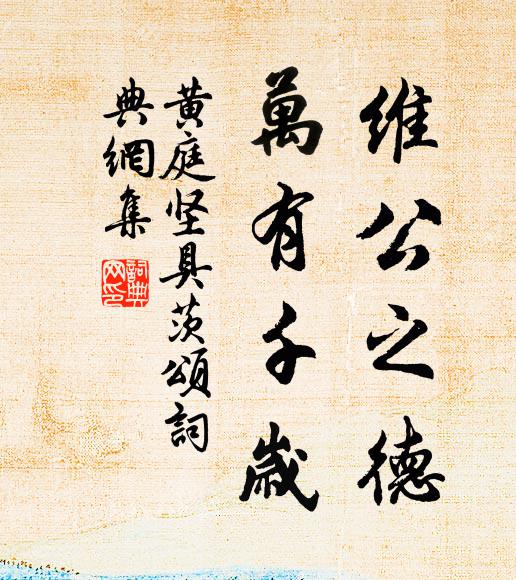 維公之德
萬有千歲
黃庭坚具茨頌詞
典網集
詞典
网印